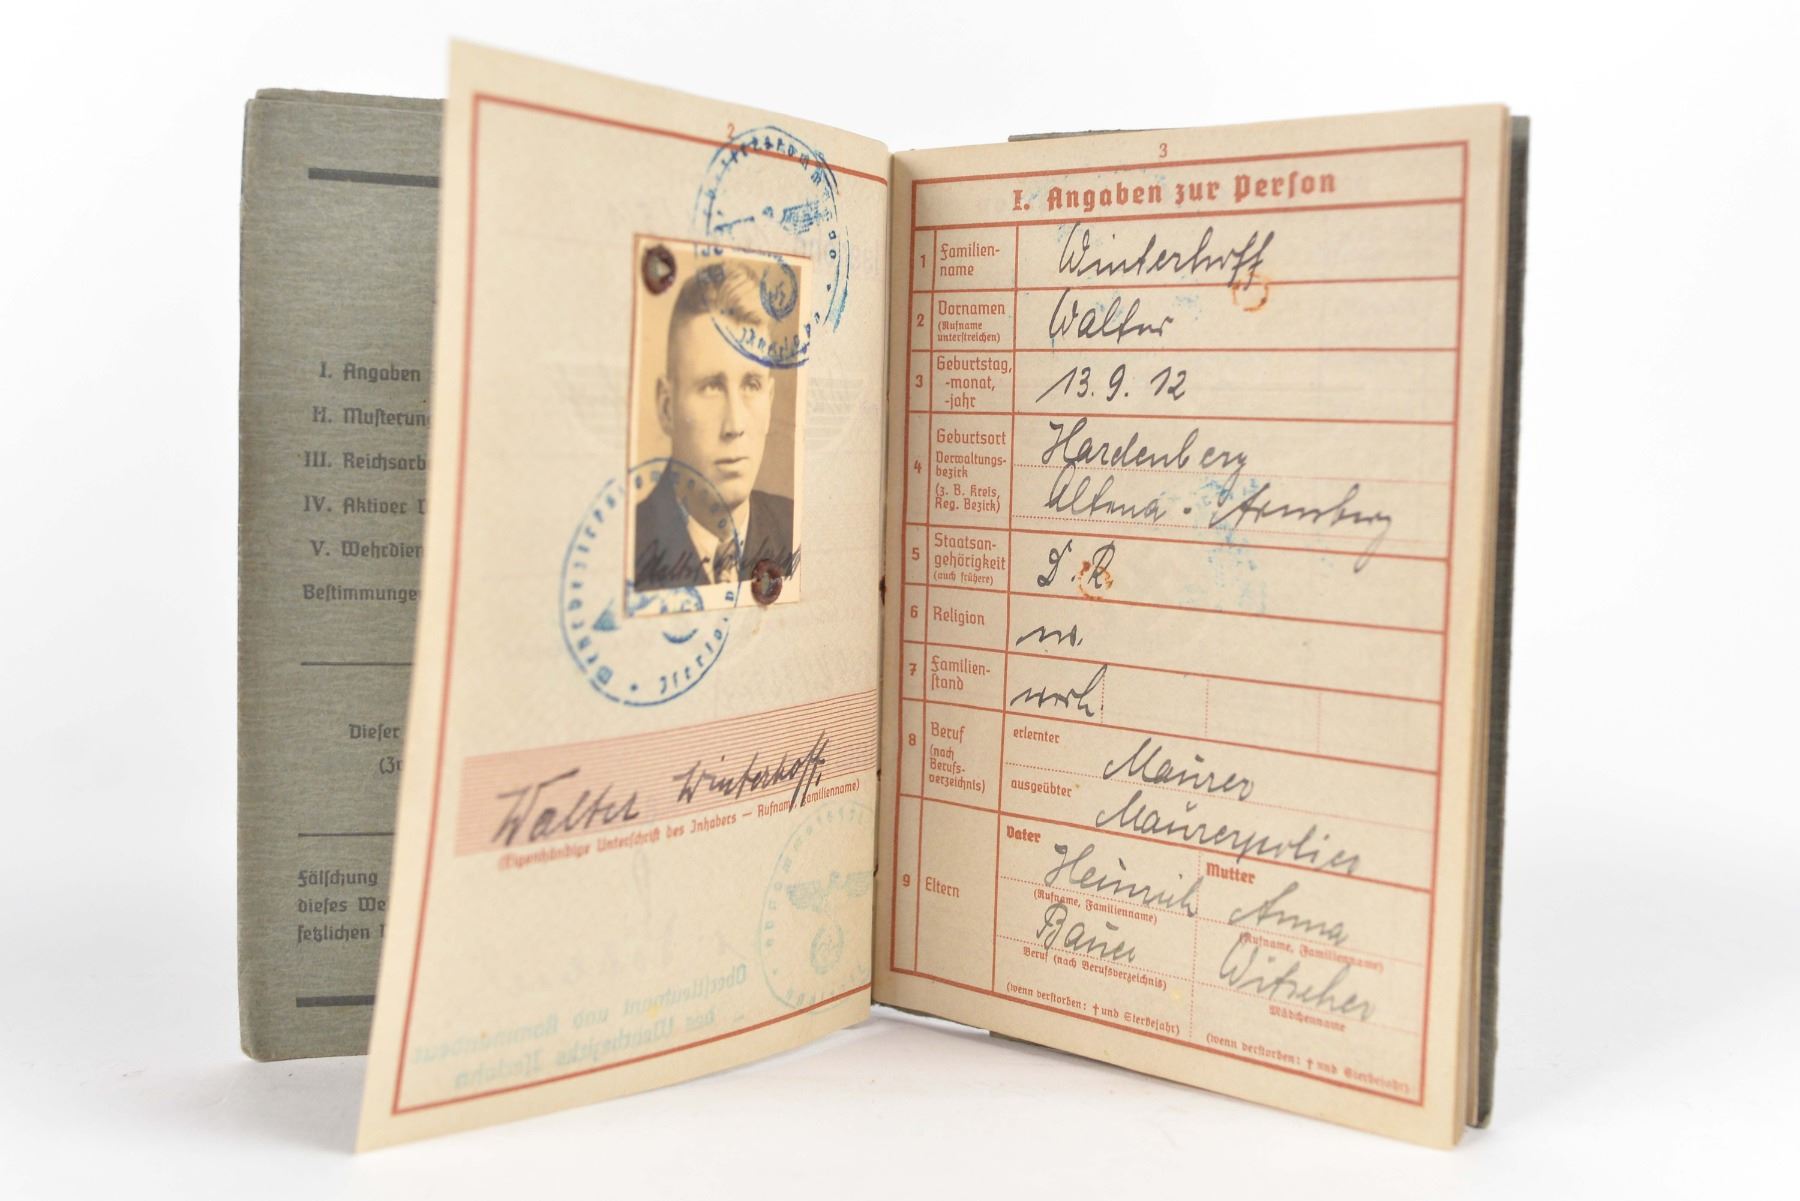 I. Angaben
II. Musterung
III. Reichsarb
IV. Aktiver D
V. Wehrdien
Bestimmungen
Dieser
Fälschung
dieses We
setzlichen
2
Wehrbezirkskommando
Iserlohn
Walter Winterhoff
Wehrbezirkskommando
Iserlohn
Walter Winterhoff
(Eigenhändige Unterschrift des Inhabers — Rufname, Familienname)
Oberstleutnant und Kommandeur
des Wehrbezirks Iserlohn
3
I. Angaben zur Person
1 Familien-
name
Winterhoff
2 Vornamen
(Rufname
unterstreichen)
Walter
3 Geburtstag,
-monat,
-jahr
13. 9. 12
4 Geburtsort
Verwaltungs-
bezirk
(z. B. Kreis,
Reg. Bezirk)
Hardenberg
Altena - Arnsberg
5 Staatsan-
gehörigkeit
(auch frühere)
D. R.
6 Religion
7 Familien-
stand
verh.
8 Beruf
(nach
Berufs-
verzeichnis)
erlernter
Maurer
ausgeübter
Maurerpolier
9 Eltern
Vater
Heinrich
(Rufname, Familienname)
Bauer
Beruf (nach Berufsverzeichnis)
(wenn verstorben: † und Sterbejahr)
Mutter
Anna
(Rufname, Familienname)
Witscher
Mädchenname
(wenn verstorben: † und Sterbejahr)